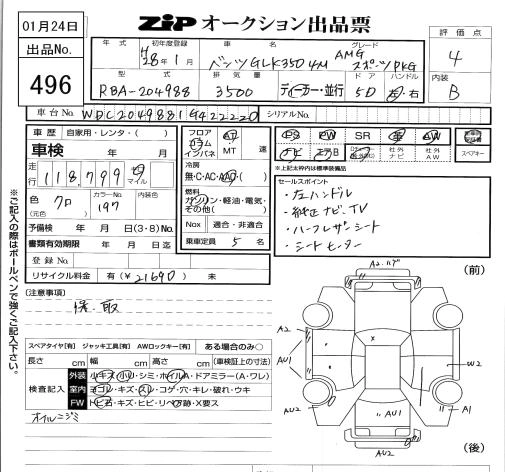 01月24日
出品No.
496
ZIP オークション出品票
評価点
4
内装
B
年式 初年度登録 車名 グレード
H28年1月 ベンツGLK350 4M AMG スポーツPKG
型式 排気量 ドア ハンドル
RBA-204988 3500 ディーラー・並行 5D 左・右
車台No. WDC2049881G422220 シリアルNo.
車歴 自家用・レンタ・( )
車検
走行 118,799 キロ マイル
色 クロ (元色) カラーNo. 197
予備検 年 月 日(3・8)No.
書類有効期限 年 月 日
登録No.
リサイクル料金 有(¥21690) 未
フロア コラム インパネ AT MT 速
冷房 無・C・AC・AAC・( )
燃料 ガソリン・軽油・電気・その他( )
Nox 適合・非適合
乗車定員 5 名
PS PW SR 革 AW
ナビ エアB 社外ナビ 社外AW
スペアキー
*上記太枠内は標準装備品
セールスポイント
・左ハンドル
・純正ナビ.TV
・ハーフレザーシート
・シートヒーター
※ご記入の際はボールペンで強くご記入下さい。
(注意事項)
保.取
スペアタイヤ[有] ジャッキ工具[有] AWロックキー[有] ある場合のみ○
長さ cm 幅 cm 高さ cm (車検証上の寸法)
検査記入
外装 小キズ・小凹・シミ・ホイルA・ドアミラー(A・ワレ)
室内 ヨゴレ・キズ・スレ・コゲ・穴・キレ・破れ・ウキ
FW トビ石・キズ・ヒビ・リペア跡・X要ス
オイルニジミ
(前)
A2
A2
AU1
W2
AU2
AU1
A1
AU2
(後)